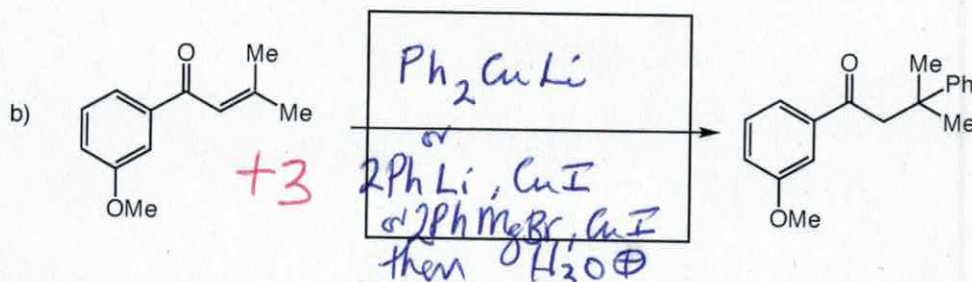 b)
O
Me
Me
OMe
+3
Ph₂CuLi
or
2PhLi, CuI
or 2PhMgBr, CuI
then H₃O⊕
O
Me
Ph
Me
OMe